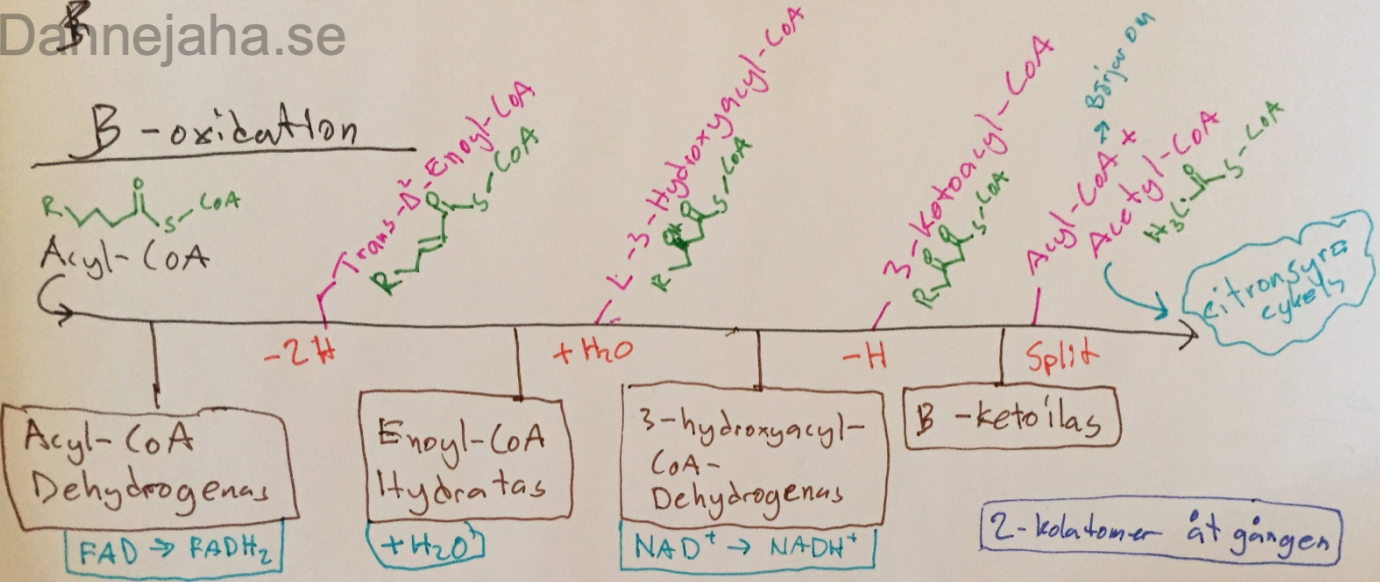 B
Dannejaha.se
B-oxidation
R O S-CoA
Acyl-CoA
Trans-Δ²-Enoyl-CoA
R O S-CoA
L-3-Hydroxyacyl-CoA
R OH O S-CoA
3-Ketoacyl-CoA
R O O S-CoA
Acyl-CoA + → Börjar om
Acetyl-CoA
H3C O S-CoA
citronsyra
cykeln
-2H
+H2O
-H
Split
Acyl-CoA
Dehydrogenas
FAD → FADH2
Enoyl-CoA
Hydratas
+H2O
3-hydroxyacyl-
CoA-
Dehydrogenas
NAD+ → NADH+
B-ketoilas
2-kolatomer åt gången